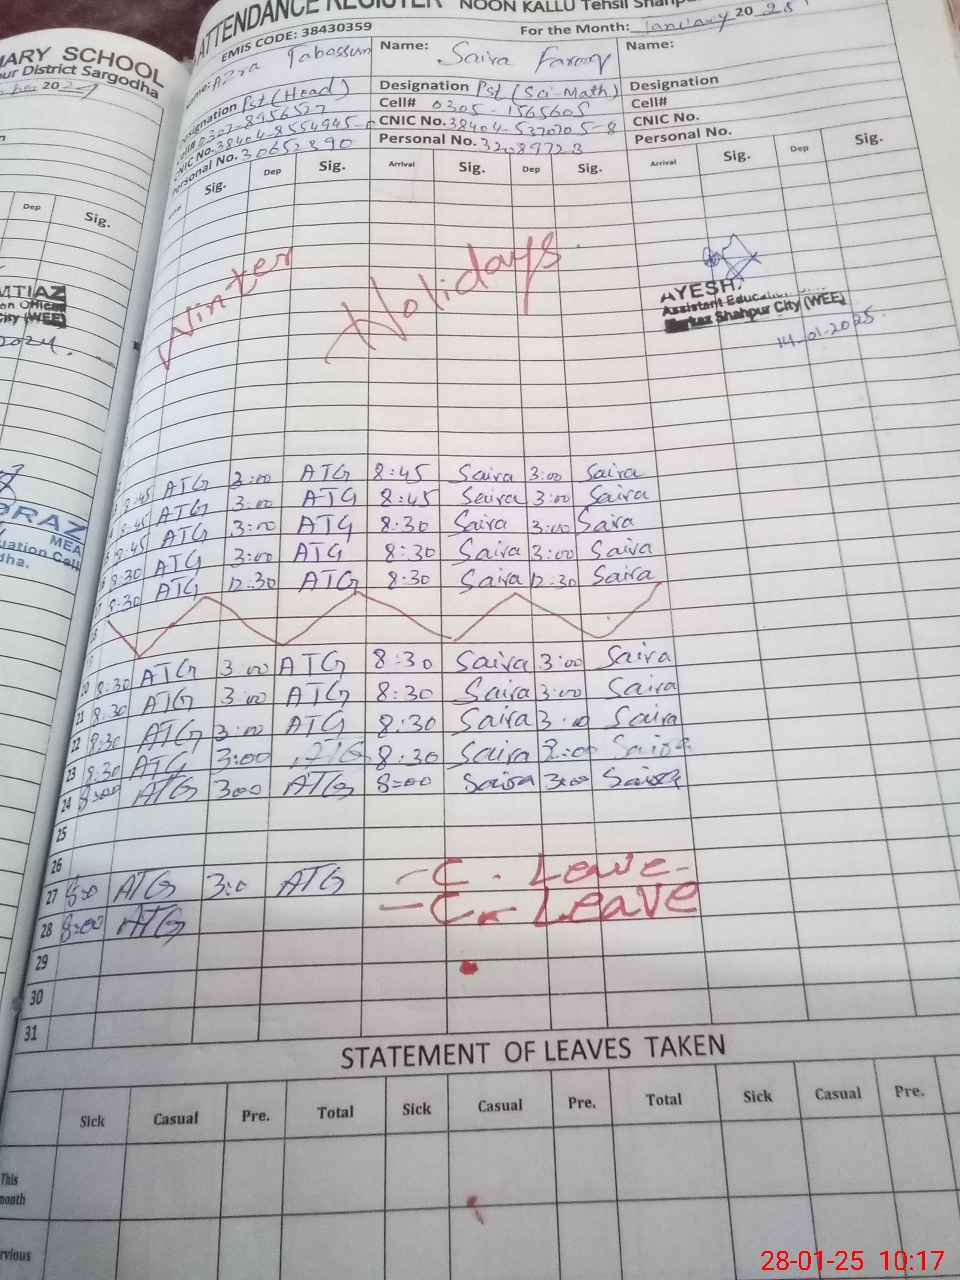 ATTENDANCE REGISTER NOON KALLU Tehsil Shahpur
EMIS CODE: 38430359 For the Month: January 2025
Name: Azra Tabassum Name: Saira Farooq Name:
Designation Pst (Head) Designation Pst (Sci-Math) Designation
Cell# 0307-8956527 Cell# 0305-1565605 Cell#
CNIC No. CNIC No. 38404-5370705-8 CNIC No.
Personal No. 30652890 Personal No. 32089723 Personal No.
Sig. Dep Sig. Arrival Sig. Dep Sig. Arrival Sig. Dep Sig.
Winter Holidays
AYESH
Assistant Educa
Markaz Shahpur City (WEE)
14-01-2025
8:45 ATG 3:00 ATG 8:45 Saira 3:00 Saira
8:45 ATG 3:00 ATG 8:45 Saira 3:00 Saira
8:45 ATG 3:00 ATG 8:30 Saira 3:00 Saira
8:30 ATG 3:00 ATG 8:30 Saira 3:00 Saira
8:30 ATG 12:30 ATG 8:30 Saira 12:30 Saira
20 8:30 ATG 3:00 ATG 8:30 Saira 3:00 Saira
21 8:30 ATG 3:00 ATG 8:30 Saira 3:00 Saira
22 8:30 ATG 3:00 ATG 8:30 Saira 3:00 Saira
23 8:30 ATG 3:00 ATG 8:30 Saira 3:00 Saira
24 8:00 ATG 300 ATG 8:00 Saira 3:00 Saira
25
26
27 8:00 ATG 3:0 ATG - C. Leave -
28 8:00 ATG - C. - Leave
29
30
31
STATEMENT OF LEAVES TAKEN
Sick Casual Pre. Total Sick Casual Pre. Total Sick Casual Pre.
This
month
rvious
ARY SCHOOL
ur District Sargodha
2024
Dep Sig.
MTIAZ
on Officer
City (WEE)
2024.
DRAZ
MEA
uation Cell
dha.
28-01-25 10:17